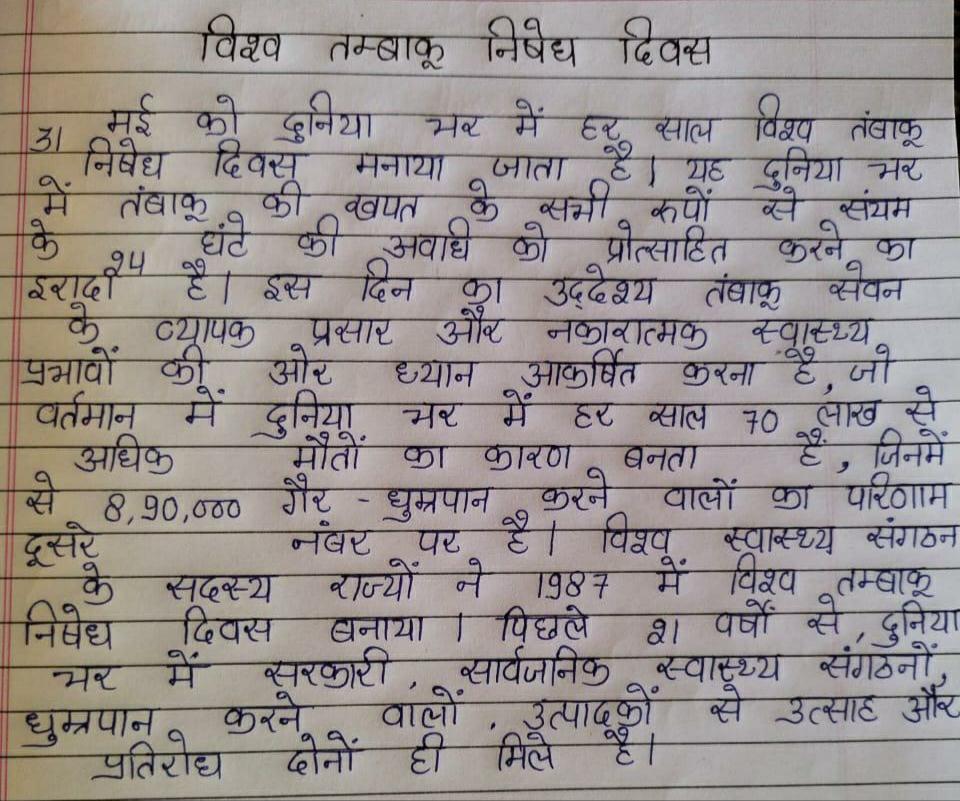 विश्व तम्बाकू निषेध दिवस
31 मई को दुनिया भर में हर साल विश्व तंबाकू
निषेध दिवस मनाया जाता है। यह दुनिया भर
में तंबाकू की खपत के सभी रूपों से संयम
के 24 घंटे की अवधि को प्रोत्साहित करने का
इरादा है। इस दिन का उद्देश्य तंबाकू सेवन
के व्यापक प्रसार और नकारात्मक स्वास्थ्य
प्रभावों की ओर ध्यान आकर्षित करना है, जो
वर्तमान में दुनिया भर में हर साल 70 लाख से
अधिक मौतों का कारण बनता हैं, जिनमें
से 8,90,000 गैर-धुम्रपान करने वालों का परिणाम
दूसरे नंबर पर है। विश्व स्वास्थ्य संगठन
के सदस्य राज्यों ने 1987 में विश्व तम्बाकू
निषेध दिवस बनाया। पिछले 21 वर्षों से, दुनिया
भर में सरकारी, सार्वजनिक स्वास्थ्य संगठनों,
धुम्रपान करने वालों, उत्पादकों से उत्साह और
प्रतिरोध दोनों ही मिले है।